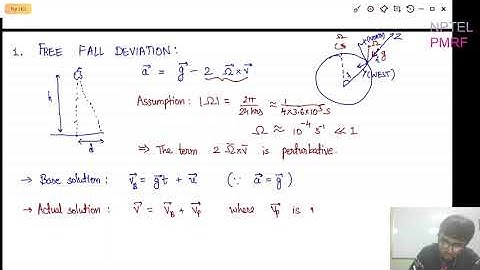 NPTEL
PMRF
1. FREE FALL DEVIATION:
a⃗ = g⃗ - 2 Ω⃗×v⃗
Assumption: |Ω| = 2π/24hrs ≈ 1/(4×3.6×10³ s)
Ω ≈ 10⁻⁴ s⁻¹ ≪ 1
⇒ The term 2 Ω⃗×v⃗ is perturbative.
h
d
Ω
Z
g
Y(WEST)
→ Base solution: v⃗_B = g⃗t + u⃗ (∵ a⃗ = g⃗)
→ Actual solution: v⃗ = v⃗_B + v⃗_p where v⃗_p is